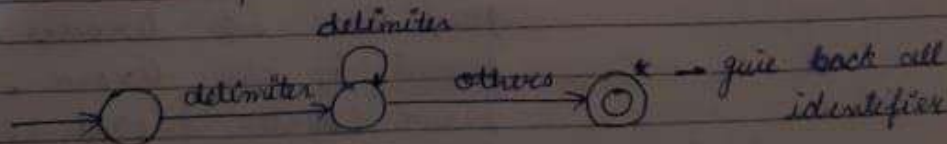 delimiter
delimiter others * → give back all
identifier